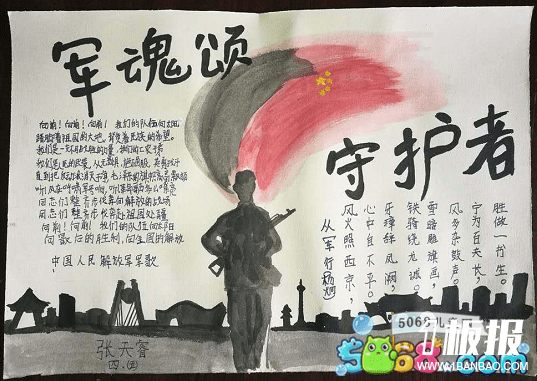 军魂颂
守护者
向前！向前！向前！我们的队伍向太阳
脚踏着祖国的大地，背负着民族的希望，
我们是一支不可战胜的力量，我们是工农子弟
我们是人民的武装，从无畏惧，绝不屈服，英勇战斗
直到把反动派消灭干净，毛泽东的旗帜高高飘扬
听！风在呼啸军号响，听！革命歌声多么嘹亮
同志们整齐步伐奔向解放的战场
同志们整齐步伐奔赴祖国边疆
向前！向前！我们的队伍向太阳
向最后的胜利，向全国的解放
中国人民解放军军歌
从军行杨炯
风火照西京，
心中自不平。
牙璋辞凤阙，
铁骑绕龙城。
雪暗雕旗画，
风多杂鼓声。
宁为百夫长，
胜做一书生。
张天睿
四.(5)
5068儿
5068
板报
WWW.1BANBAO.COM